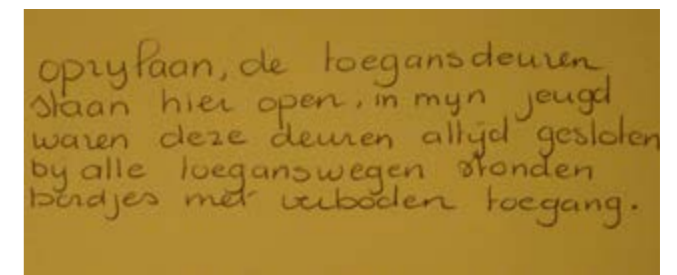 oprylaan, de toegansdeuren
staan hier open, in myn jeugd
waren deze deuren altyd gesloten
by alle toeganswegen stonden
bordjes met verboden toegang.